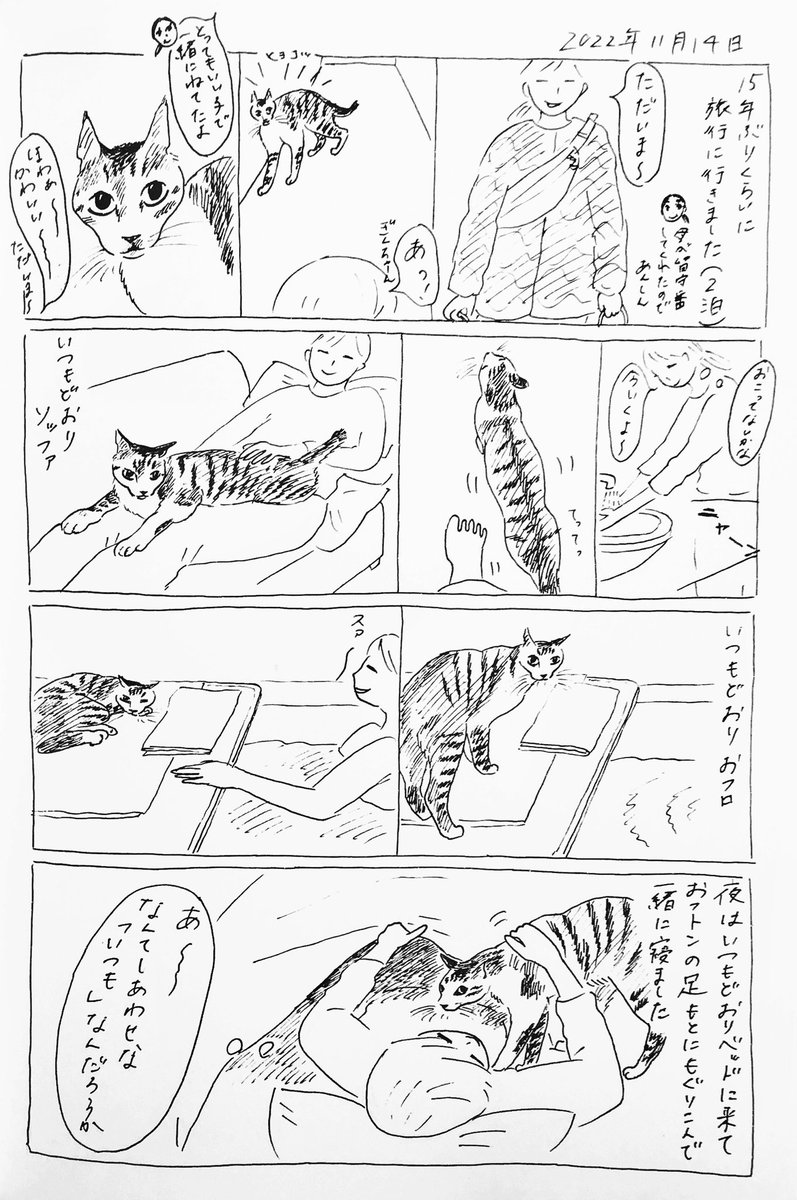 2022年11月14日
15年ぶりくらいに
旅行に行きました(2泊)
母が留守番
してくれたので
あんしん
ただいま〜
ヒョコッ
あっ!
ぎんちゃーん
とってもいい子で
一緒にねてたよ
ほわぁ〜
かわいい〜
ただいま〜
おこってないかな
ニャー
てってっ
いつもどおり
ソファ
いつもどおり おフロ
スァ
夜はいつもどおりベッドに来て
おフトンの足もとにもぐりこんで
一緒に寝ました
あ〜〜
なんてしあわせな
「いつも」なんだろうか